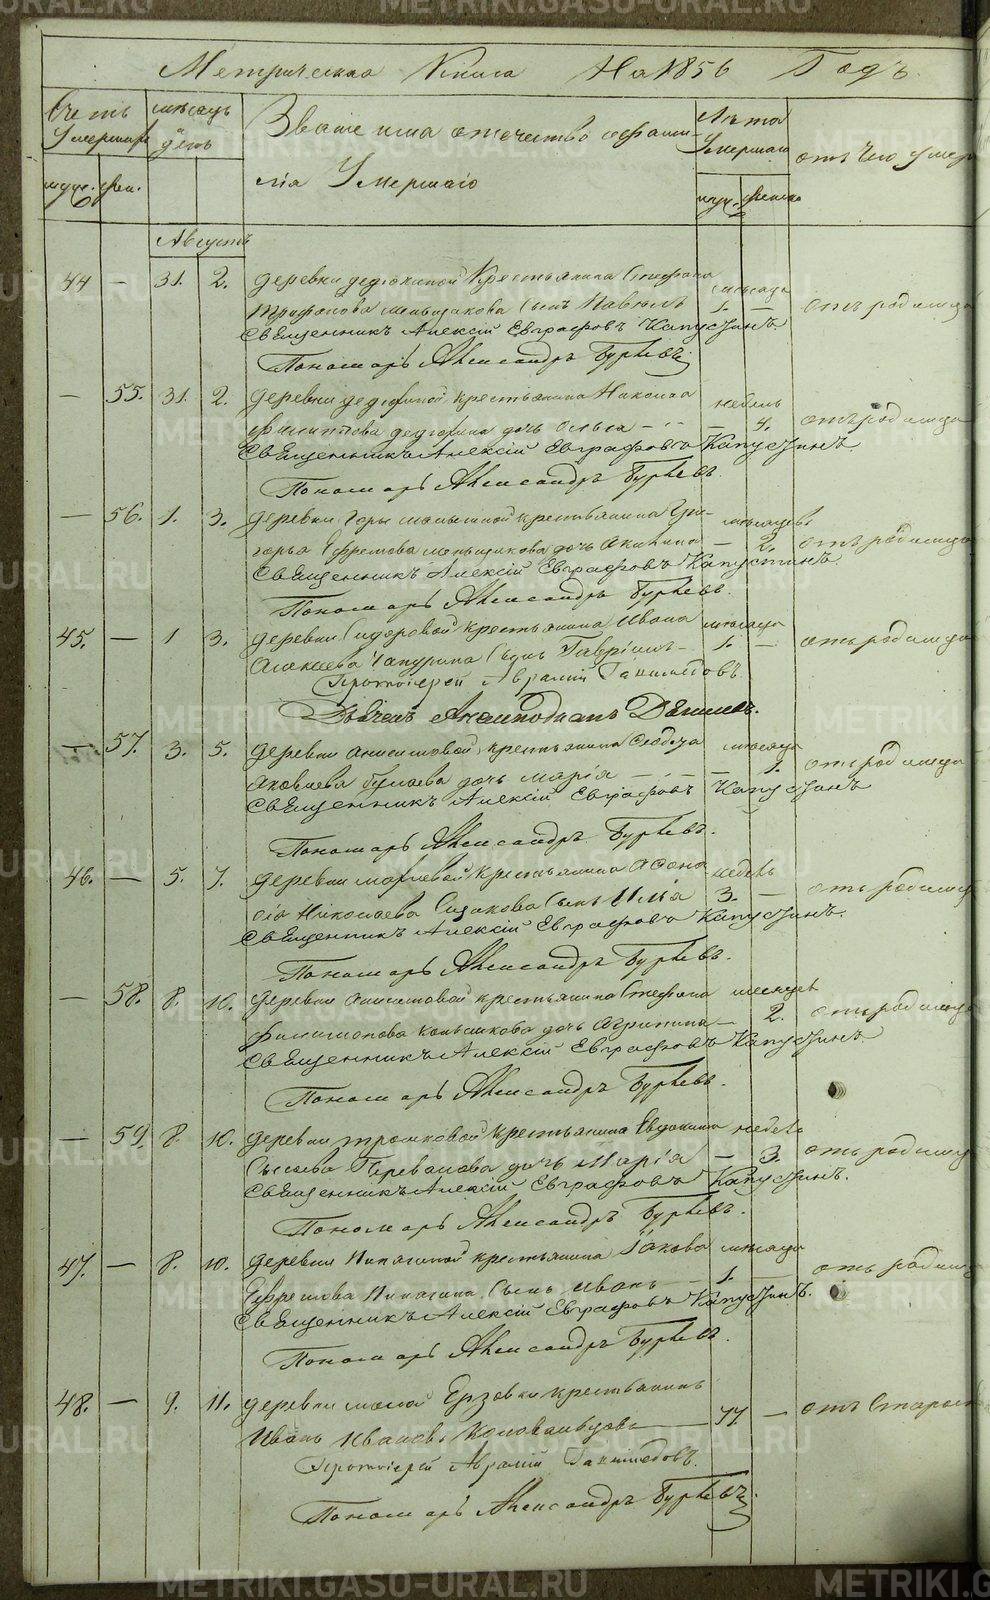 Метрическая Книга На 1856 Годъ.
Счетъ Умершихъ
муж. жен.
мѣсяцъ и день
Званіе имя отечество и фами-
лія Умершаго
Лѣта Умершаго
муж. женск.
отъ чего умеръ
Августъ
44 — 31. 2. деревни дедюхиной Крестьянина Стефана мѣсяца
Трифонова меньщикова Сынъ Павелъ 1. — отъ родимца
Священникъ Алексій Евграфовъ Капустинъ
Пономарь Александръ Бурневъ
— 55. 31. 2. деревни дедюхиной крестьянина Николая недѣль
филиппова дедюхина дочь Ольга — 4. отъ родимца
Священникъ Алексій Евграфовъ Капустинъ.
Пономарь Александръ Бурневъ.
— 56. 1. 3. деревни Горы крестьянина Гри- мѣсяцевъ
горья Ефремова меньщикова дочь Акилина — 2. отъ родимца
Священникъ Алексій Евграфовъ Капустинъ.
Пономарь Александръ Бурневъ.
45. — 1 3. деревни Сидоровой крестьянина Ивана мѣсяца
Алексѣева Чапурина Сынъ Гавріилъ — 1. — отъ родимца
Протоіерей Авраамій
Дьячекъ
— 57. 3. 5. деревни анисимовой крестьянина мѣсяца
Яковлева дочь марія — 1. отъ родимца
Священникъ Алексій Евграфовъ Капустинъ
Пономарь Александръ Бурневъ.
46. — 5. 7. деревни крестьянина Афона- недѣль
сія Николаева Сынъ Илья 3. — отъ родимца
Священникъ Алексій Евграфовъ Капустинъ.
Пономарь Александръ Бурневъ.
— 58. 8. 10. деревни анисимовой крестьянина Стефана месяцевъ
филимонова дочь Агрипина — 2. отъ родимца
Священникъ Алексій Евграфовъ Капустинъ.
Пономарь Александръ Бурневъ.
— 59. 8. 10. деревни трошковой крестьянина Евдокима недѣль
Сысоева дочь Марія — 3. отъ родимца
Священникъ Алексій Евграфовъ Капустинъ.
Пономарь Александръ Бурневъ.
47. — 8. 10. деревни Кипятиной крестьянина Іакова мѣсяца
Ефремова Кипятина Сынъ Иванъ — 1. — отъ родимца
Священникъ Алексій Евграфовъ Капустинъ.
Пономарь Александръ Бурневъ.
48. — 9. 11. деревни малой Ерзовки крестьянинъ
Иванъ Ивановъ — 77 — отъ Старости
Протоіерей Авраамій
Пономарь Александръ Бурневъ.
METRIKI.GASO-URAL.RU